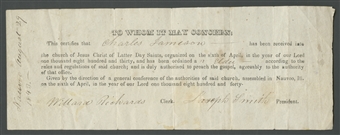 TO WHOM IT MAY CONCERN:
This certifies that Charles Jameson has been received into
the church of Jesus Christ of Latter Day Saints, organized on the sixth of April, in the year of our Lord
one thousand eight hundred and thirty, and has been ordained a Elder according to the
rules and regulations of said church; and is duly authorized to preach the gospel, agreeably to the authority
of that office.
Given by the direction of a general conference of the authorities of said church, assembled in Nauvoo, Ill.
on the sixth of April, in the year of our Lord one thousand eight hundred and forty.
Willard Richards Clerk. Joseph Smith President.
Nauvoo August